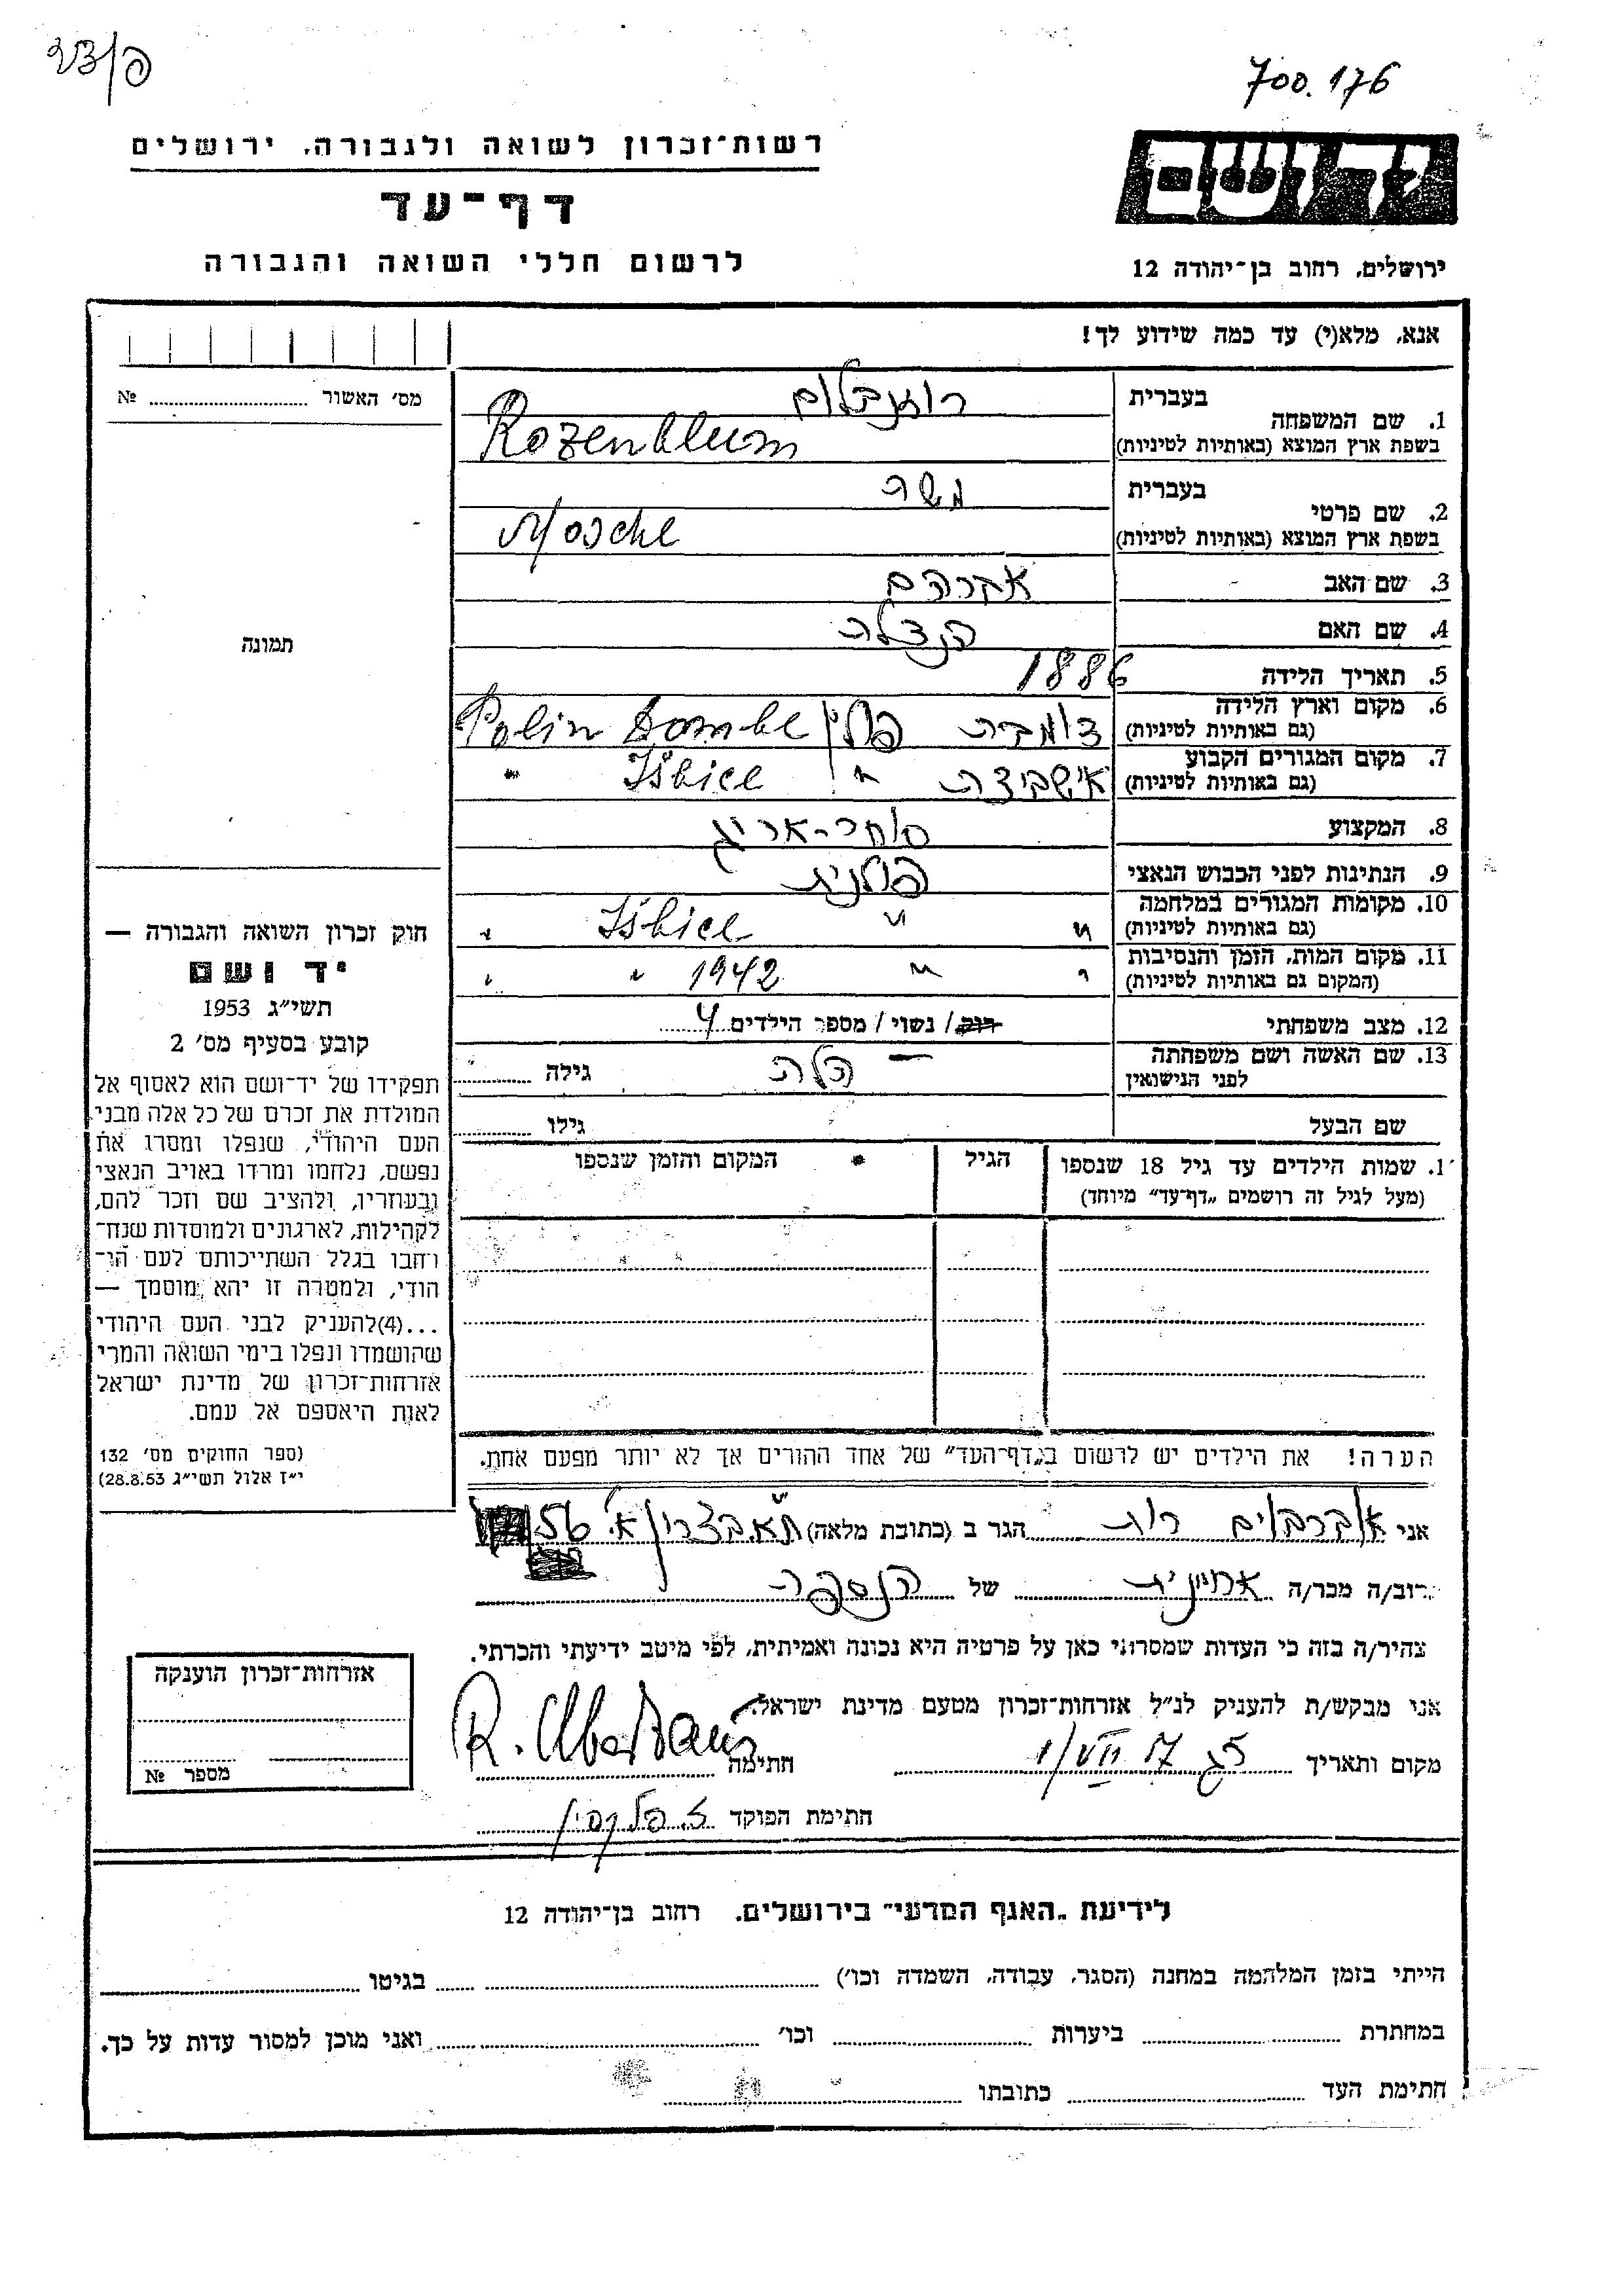 700.176
רשות־זכרון לשואה ולגבורה, ירושלים
דף־עד
לרשום חללי השואה והגבורה
יד ושם
ירושלים, רחוב בן־יהודה 12
אנא, מלא(י) עד כמה שידוע לך!
מס׳ האשור № ........
תמונה
1. שם המשפחה
בעברית רוזנבלום
בשפת ארץ המוצא (באותיות לטיניות) Rozenblum
2. שם פרטי
בעברית משה
בשפת ארץ המוצא (באותיות לטיניות) Mosche
3. שם האב אברהם
4. שם האם הנצלה
5. תאריך הלידה 1886
6. מקום וארץ הלידה (גם באותיות לטיניות) דומברה פולין Polin Dombe
7. מקום המגורים הקבוע (גם באותיות לטיניות) אישביצה " Išbice "
8. המקצוע סוחר-אריג
9. הנתינות לפני הכבוש הנאצי פולנית
10. מקומות המגורים במלחמה (גם באותיות לטיניות) " " Išbice "
11. מקום המות, הזמן והנסיבות (המקום גם באותיות לטיניות) " " 1942 " "
12. מצב משפחתי רווק / נשוי / מספר הילדים 4
13. שם האשה ושם משפחתה לפני הנישואין הלה — גילה ........
שם הבעל גילו ........
1. שמות הילדים עד גיל 18 שנספו
(מעל לגיל זה רושמים „דף־עד״ מיוחד)
הגיל
המקום והזמן שנספו
חוק זכרון השואה והגבורה —
יד ושם
תשי״ג 1953
קובע בסעיף מס׳ 2
תפקידו של יד־ושם הוא לאסוף אל
המולדת את זכרם של כל אלה מבני
העם היהודי, שנפלו ומסרו את
נפשם, נלחמו ומרדו באויב הנאצי
ובעוזריו, ולהציב שם וזכר להם,
לקהילות, לארגונים ולמוסדות שנח־
רחבו בגלל השתייכותם לעם הי־
הודי, ולמטרה זו יהא מוסמך —
...(4)להעניק לבני העם היהודי
שהושמדו ונפלו בימי השואה והמרי
אזרחות־זכרון של מדינת ישראל
לאות היאספם אל עמם.
(ספר החוקים מס׳ 132
י״ז אלול תשי״ג 28.8.53)
הערה! את הילדים יש לרשום ב„דף־העד״ של אחד ההורים אך לא יותר מפעם אחת.
אני רות הגר ב (כתובת מלאה) ת״א. בצרון א׳ 56
רוב/ה מכר/ה אחיינית של הנספה
צהיר/ה בזה כי העדות שמסרתי כאן על פרטיה היא נכונה ואמיתית, לפי מיטב ידיעתי והכרתי.
אני מבקש/ת להעניק לנ״ל אזרחות־זכרון מטעם מדינת ישראל.
מקום ותאריך חתימה
חתימת הפוקד
אזרחות־זכרון הוענקה
מספר №
לידיעת „האגף המדעי״ בירושלים, רחוב בן־יהודה 12
הייתי בזמן המלחמה במחנה (הסגר, עבודה, השמדה וכו׳) ........ בגיטו ........
במחתרת ........ ביערות ........ וכו׳ ........ ואני מוכן למסור עדות על כך.
חתימת העד ........ כתובתו ........